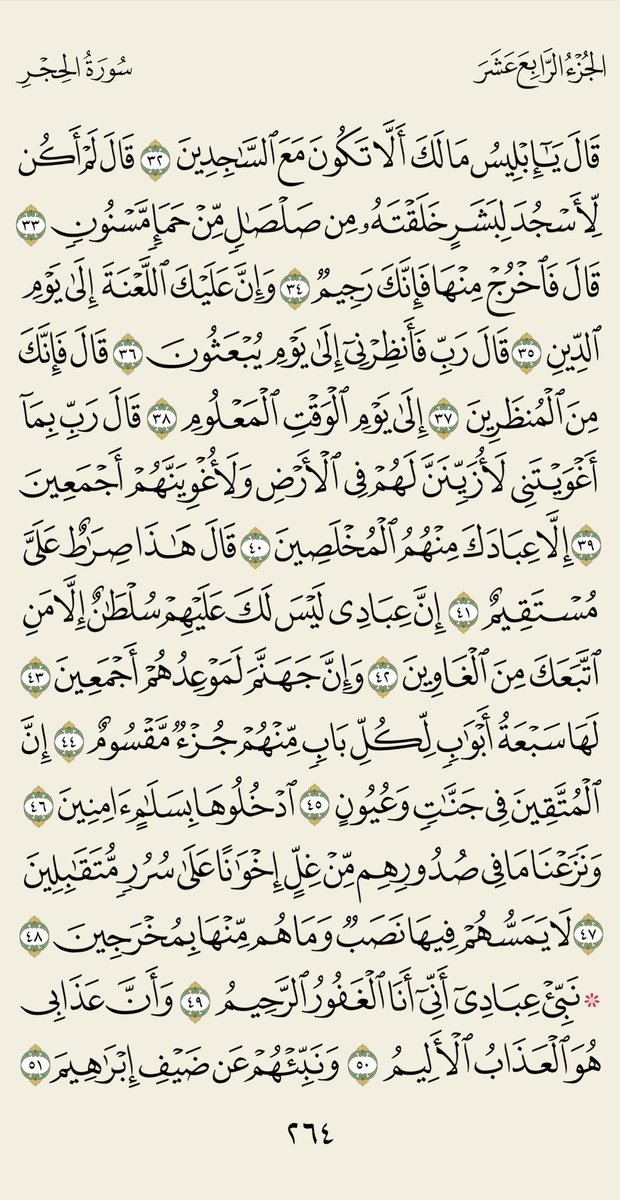 الجُزْءُ الرَّابِعَ عَشَرَ
سُورَةُ الحِجْرِ
قَالَ يَـٰٓإِبْلِيسُ مَا لَكَ أَلَّا تَكُونَ مَعَ ٱلسَّـٰجِدِينَ ٣٢ قَالَ لَمْ أَكُن
لِّأَسْجُدَ لِبَشَرٍ خَلَقْتَهُۥ مِن صَلْصَـٰلٍ مِّنْ حَمَإٍ مَّسْنُونٍ ٣٣
قَالَ فَٱخْرُجْ مِنْهَا فَإِنَّكَ رَجِيمٌ ٣٤ وَإِنَّ عَلَيْكَ ٱللَّعْنَةَ إِلَىٰ يَوْمِ
ٱلدِّينِ ٣٥ قَالَ رَبِّ فَأَنظِرْنِىٓ إِلَىٰ يَوْمِ يُبْعَثُونَ ٣٦ قَالَ فَإِنَّكَ
مِنَ ٱلْمُنظَرِينَ ٣٧ إِلَىٰ يَوْمِ ٱلْوَقْتِ ٱلْمَعْلُومِ ٣٨ قَالَ رَبِّ بِمَآ
أَغْوَيْتَنِى لَأُزَيِّنَنَّ لَهُمْ فِى ٱلْأَرْضِ وَلَأُغْوِيَنَّهُمْ أَجْمَعِينَ
٣٩ إِلَّا عِبَادَكَ مِنْهُمُ ٱلْمُخْلَصِينَ ٤٠ قَالَ هَـٰذَا صِرَٰطٌ عَلَىَّ
مُسْتَقِيمٌ ٤١ إِنَّ عِبَادِى لَيْسَ لَكَ عَلَيْهِمْ سُلْطَـٰنٌ إِلَّا مَنِ
ٱتَّبَعَكَ مِنَ ٱلْغَاوِينَ ٤٢ وَإِنَّ جَهَنَّمَ لَمَوْعِدُهُمْ أَجْمَعِينَ ٤٣
لَهَا سَبْعَةُ أَبْوَٰبٍ لِّكُلِّ بَابٍ مِّنْهُمْ جُزْءٌ مَّقْسُومٌ ٤٤ إِنَّ
ٱلْمُتَّقِينَ فِى جَنَّـٰتٍ وَعُيُونٍ ٤٥ ٱدْخُلُوهَا بِسَلَـٰمٍ ءَامِنِينَ ٤٦
وَنَزَعْنَا مَا فِى صُدُورِهِم مِّنْ غِلٍّ إِخْوَٰنًا عَلَىٰ سُرُرٍ مُّتَقَـٰبِلِينَ
٤٧ لَا يَمَسُّهُمْ فِيهَا نَصَبٌ وَمَا هُم مِّنْهَا بِمُخْرَجِينَ ٤٨
۞ نَبِّئْ عِبَادِىٓ أَنِّىٓ أَنَا ٱلْغَفُورُ ٱلرَّحِيمُ ٤٩ وَأَنَّ عَذَابِى
هُوَ ٱلْعَذَابُ ٱلْأَلِيمُ ٥٠ وَنَبِّئْهُمْ عَن ضَيْفِ إِبْرَٰهِيمَ ٥١
٢٦٤